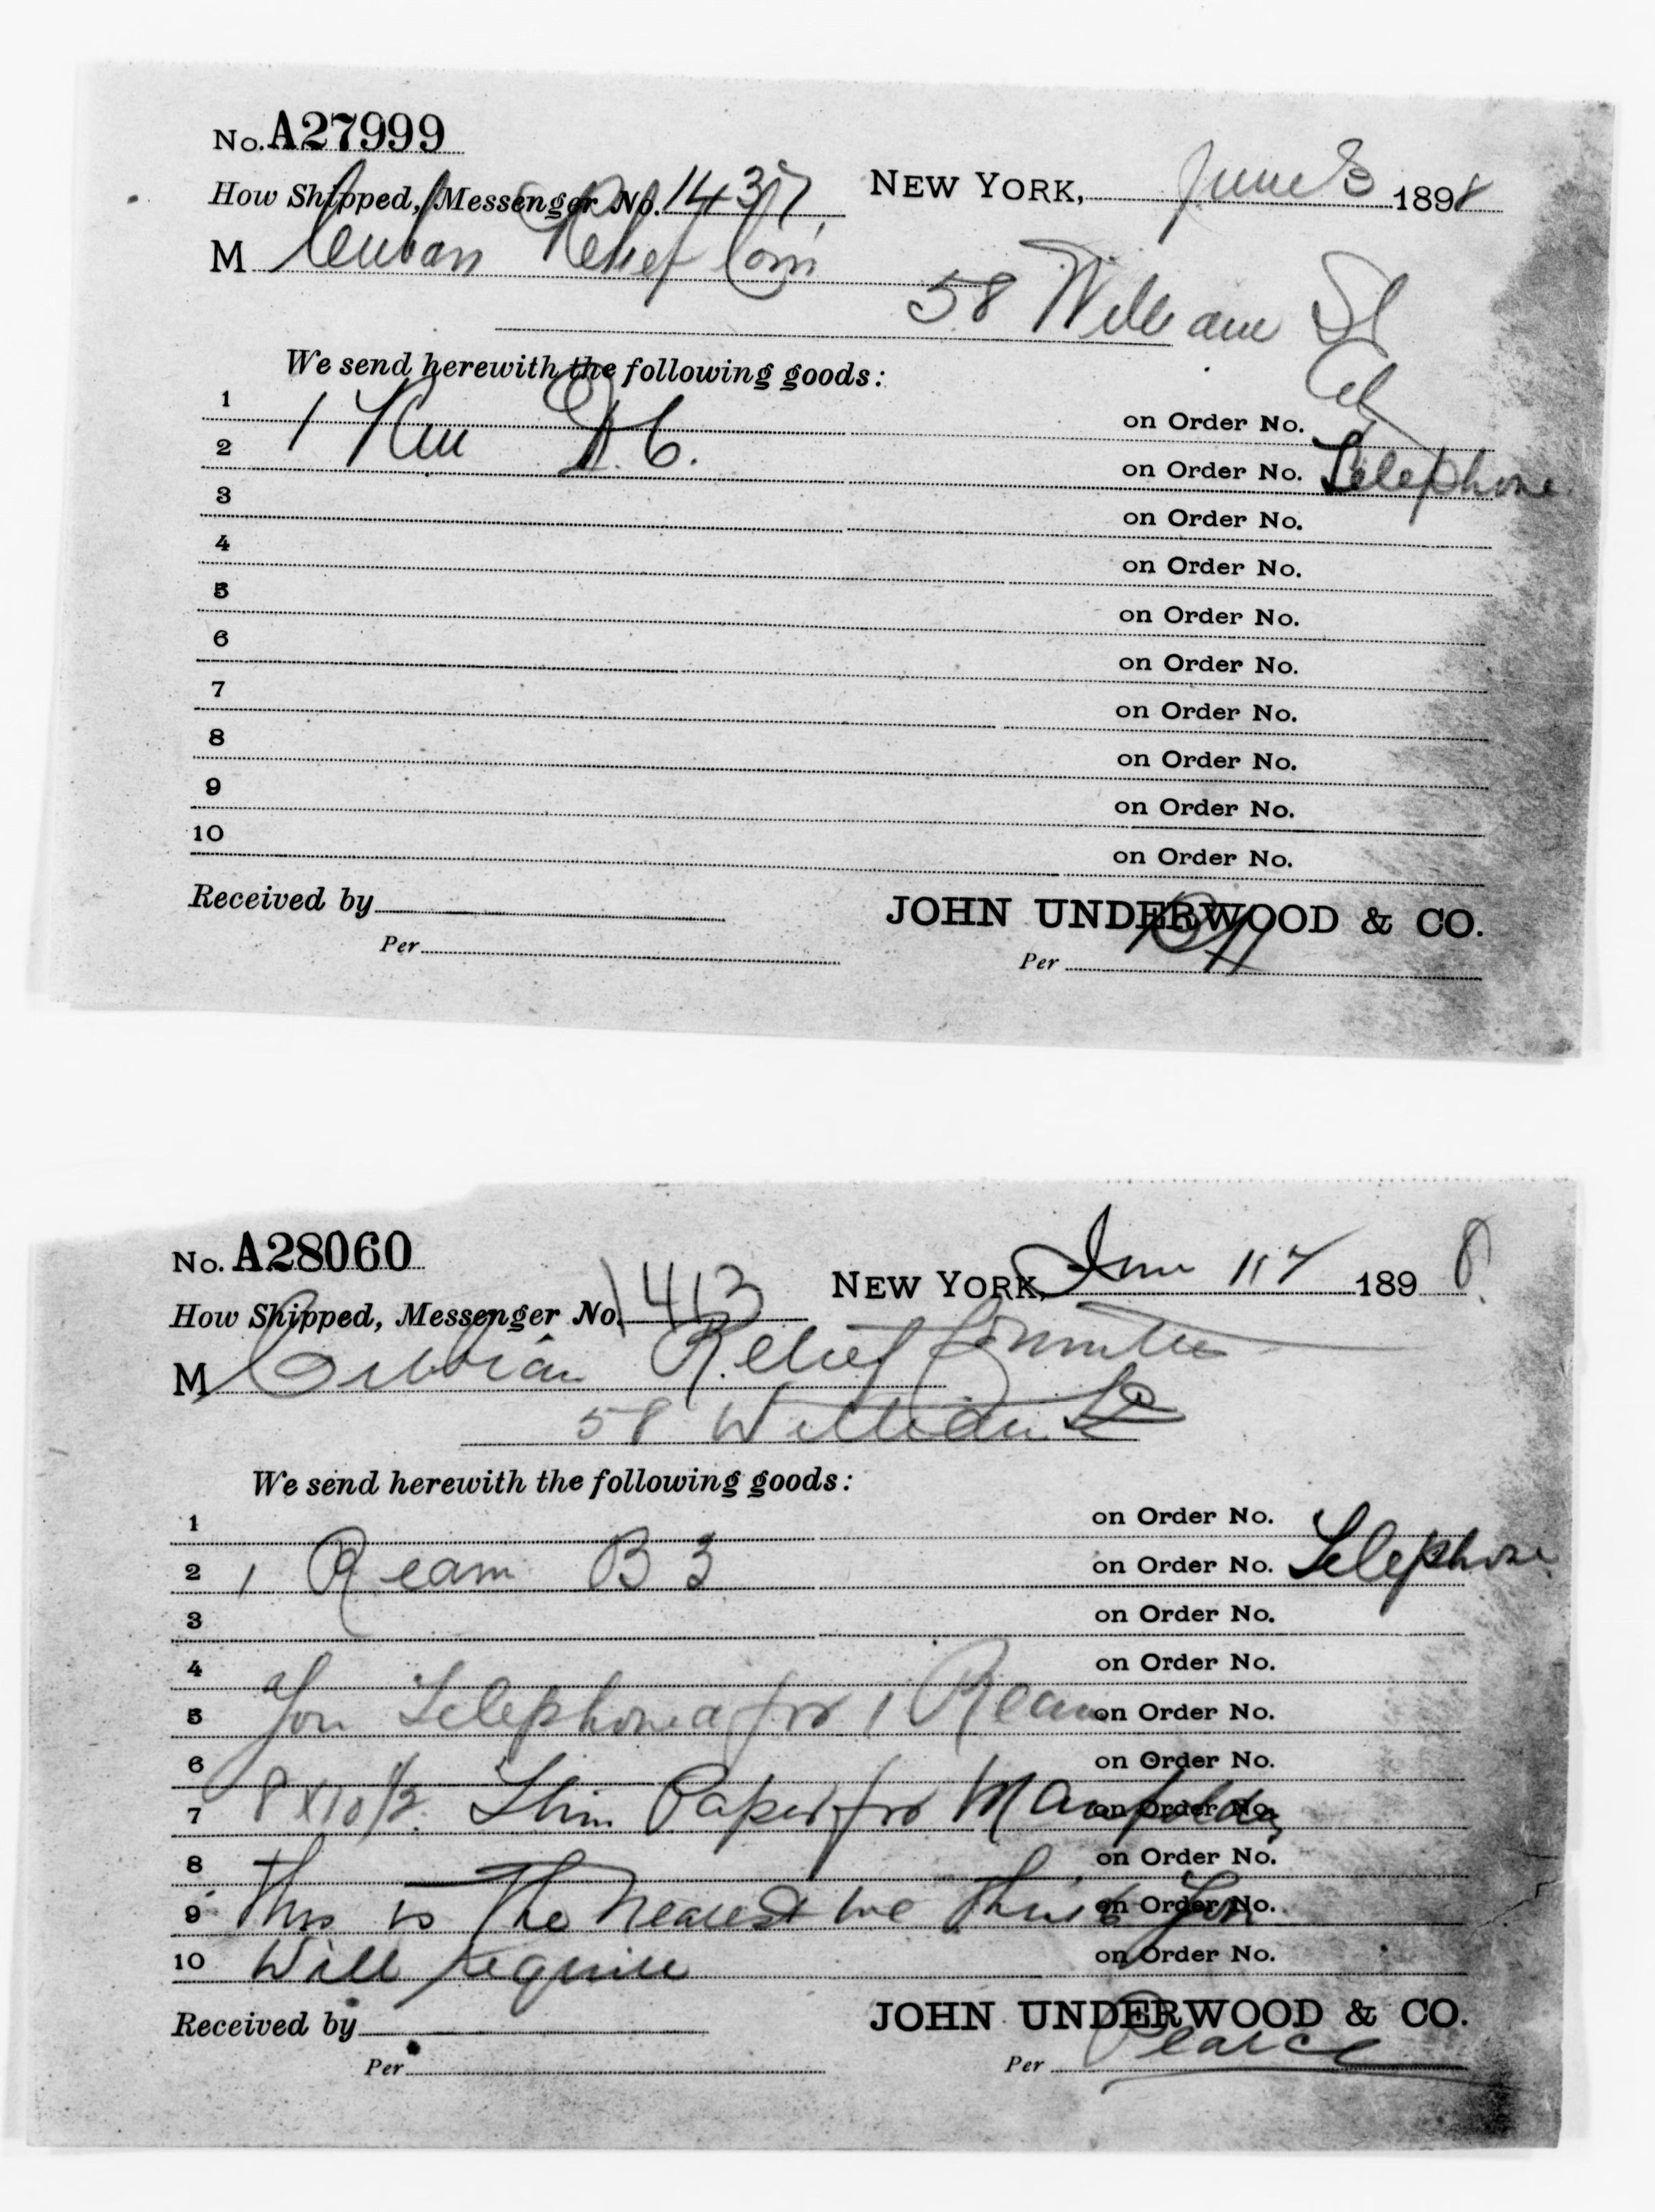 No. A27999
How Shipped, Messenger No. 1437 NEW YORK, June 3 1898
M Cuban Relief Com
58 William St
We send herewith the following goods:
1 on Order No.
2 1 on Order No. Telephone
3 on Order No.
4 on Order No.
5 on Order No.
6 on Order No.
7 on Order No.
8 on Order No.
9 on Order No.
10 on Order No.
Received by JOHN UNDERWOOD & CO.
Per Per
No. A28060
How Shipped, Messenger No. 1413 NEW YORK, June 1898
M Cuban Relief Committee
58 William St
We send herewith the following goods:
1 on Order No.
2 1 Ream B 3 on Order No. Telephone
3 on Order No.
4 on Order No.
5 You Telephoned for 1 Ream on Order No.
6 on Order No.
7 8 x 10 1/2 Thin Paper for Manifolding on Order No.
8 on Order No.
9 This is The Nearest we think You on Order No.
10 Will require on Order No.
Received by JOHN UNDERWOOD & CO.
Per Per Pearce